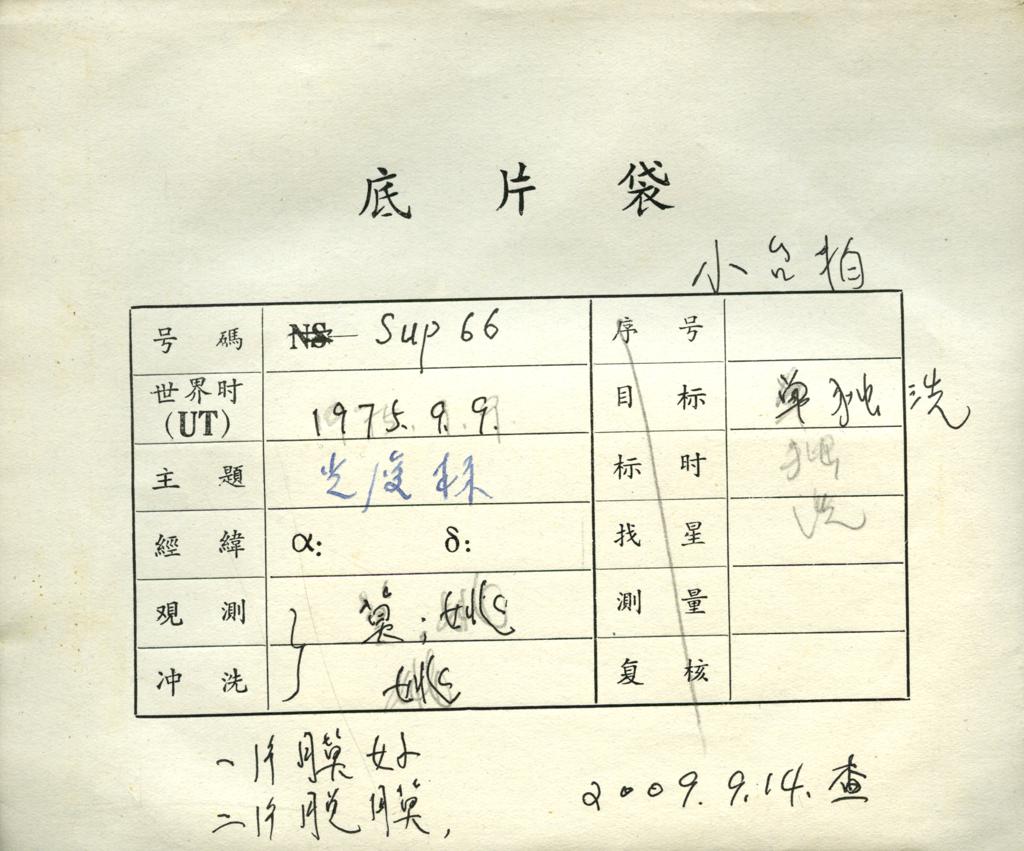 底 片 袋
小台拍
号 碼 NS Sup 66 序 号
世界时 (UT) 1975.9.9. 目 标 单独洗
主 題 光度标 标 时 独
經 緯 α: δ: 找 星 洗
观 測 黄; 姚 測 量
冲 洗 姚 复 核
一片膜好
二片脱膜,
2009.9.14.查